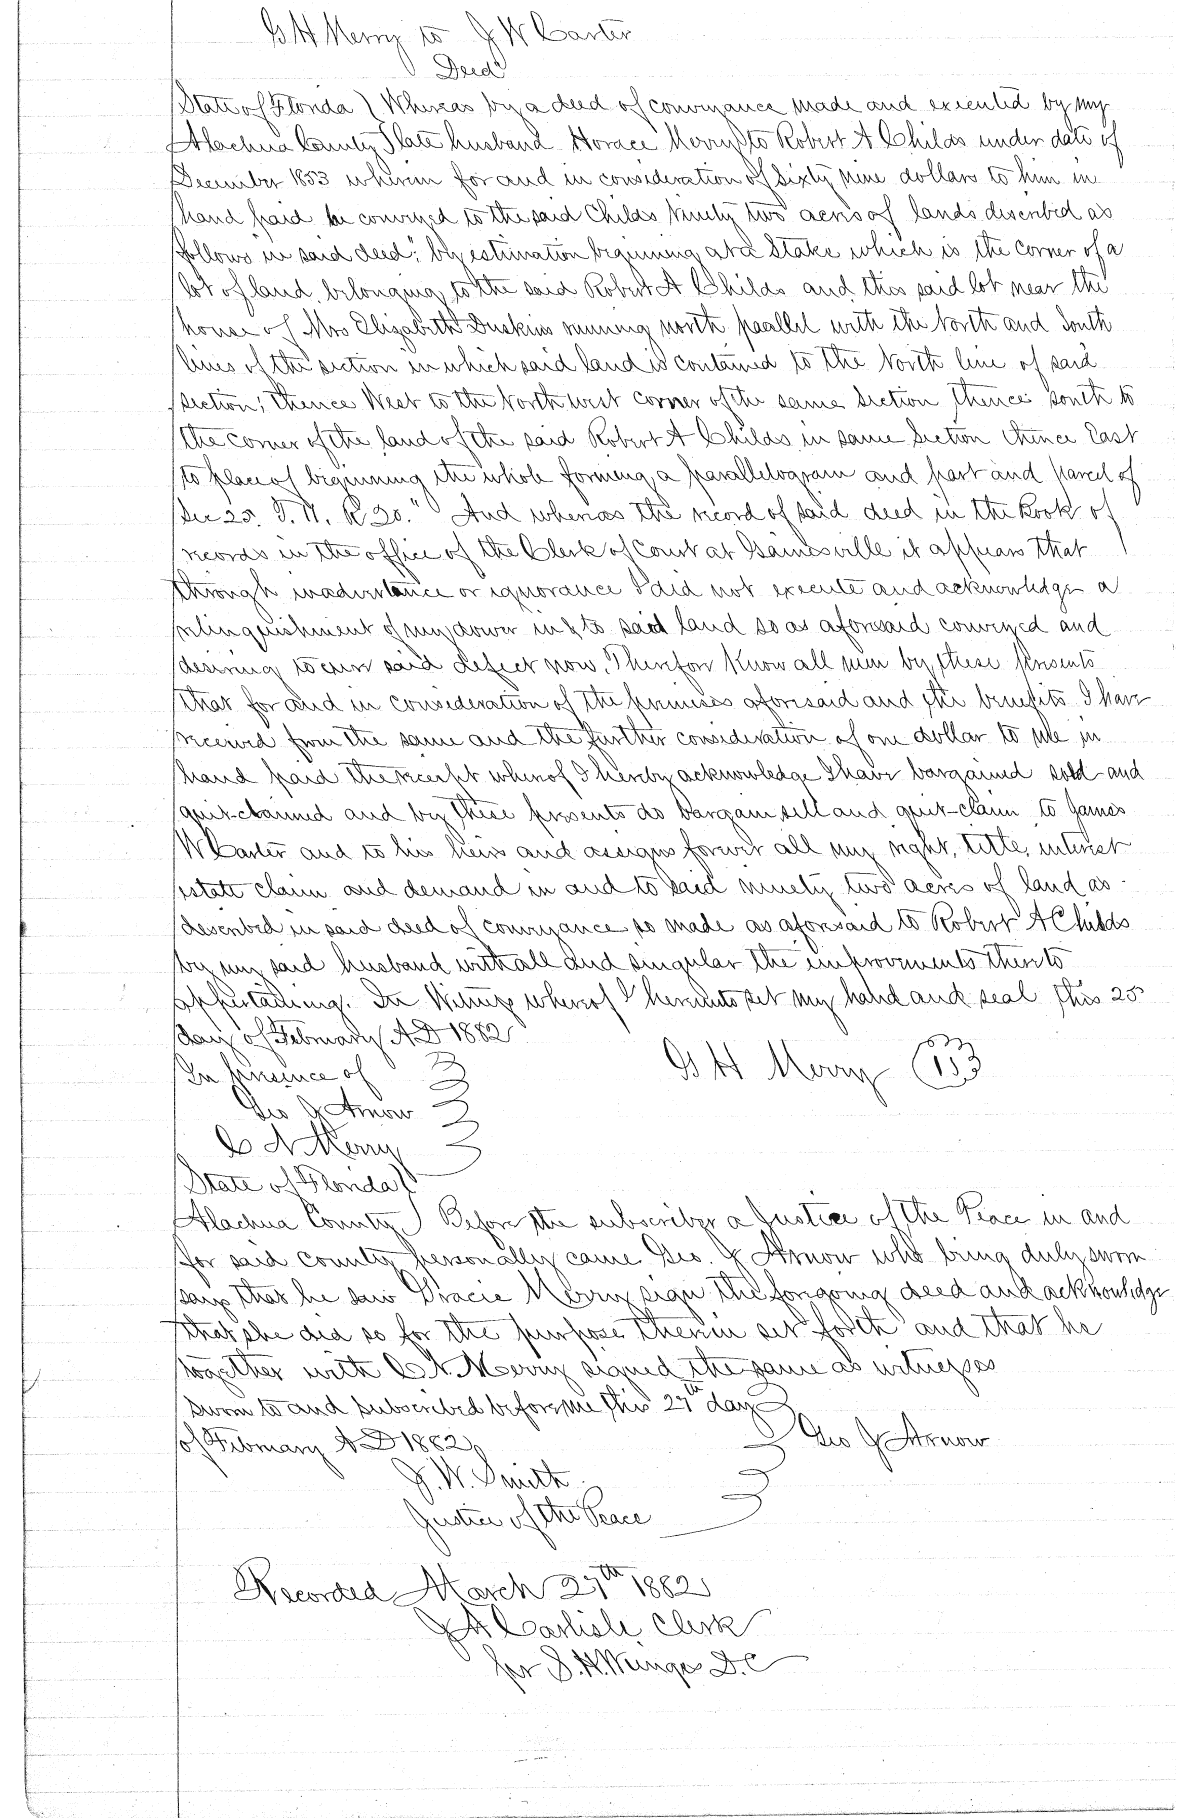 G H Merry to J W Carter
Deed
State of Florida } Whereas by a deed of conveyance made and executed by my
Alachua County } late husband Horace Merry to Robert A Childs under date of
December 1853 wherein for and in consideration of Sixty nine dollars to him in
hand paid he conveyed to the said Childs Ninety two acres of lands described as
follows in said deed: "by estimation beginning at a Stake which is the corner of a
lot of land belonging to the said Robert A Childs and this said lot near the
house of Mrs Elizabeth Duskins running north paallel with the North and South
lines of the section in which said land is contained to the North line of said
section; thence West to the North west corner of the same Section thence south to
the corner of the land of the said Robert A Childs in same Section thence East
to place of beginning the whole forming a parallelogram and part and parcel of
Sec 25. T. 11. R 20." And whereas the record of said deed in the Book of
records in the office of the Clerk of Court at Gainesville it appears that
through inadvertance or ignorance I did not execute and acknowledge a
relinquishment of my dower in & to said land so as aforesaid conveyed and
desiring to cure said defect now, Therefore Know all men by these presents
that for and in consideration of the premises aforesaid and the benefits I have
received from the same and the further consideration of one dollar to me in
hand paid the receipt whereof I hereby acknowledge I have bargained sold and
quit-claimed and by these presents do bargain, sell and quit-claim to James
W Carter and to his heirs and assigns forever all my right, title, interest
estate claim and demand in and to said ninety two acres of land as
described in said deed of conveyance so made as aforesaid to Robert A Childs
by my said husband with all and singular the improvements thereto
appertaining. In Witness whereof I hereunto set my hand and seal this 25
day of February A D 1882
In presence of
G H Merry
Geo J Arnow
C N Merry
State of Florida }
Alachua County } Before the subscriber a Justice of the Peace in and
for said county personally came Geo. J Arnow who being duly sworn
says that he saw Gracie Merry sign the forgoing deed and acknowledge
that she did so for the purpose therein set forth and that he
together with C. N. Merry signed the same as witnesses
Sworn to and subscribed before me this 27th day
of February A D 1882
Geo J Arnow
J. W. Smith
Justice of the Peace
Recorded March 27th 1882
J A Carlisle Clerk
per S. H. Wienges D. C